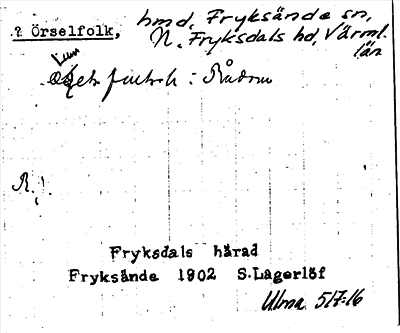 ? Örselfolk,
hmd, Fryksände sn,
N. Fryksdals hd, Värml.
län
R.!
Fryksdals härad
Fryksände 1902 S.Lagerlöf
Ulma 5/7-16